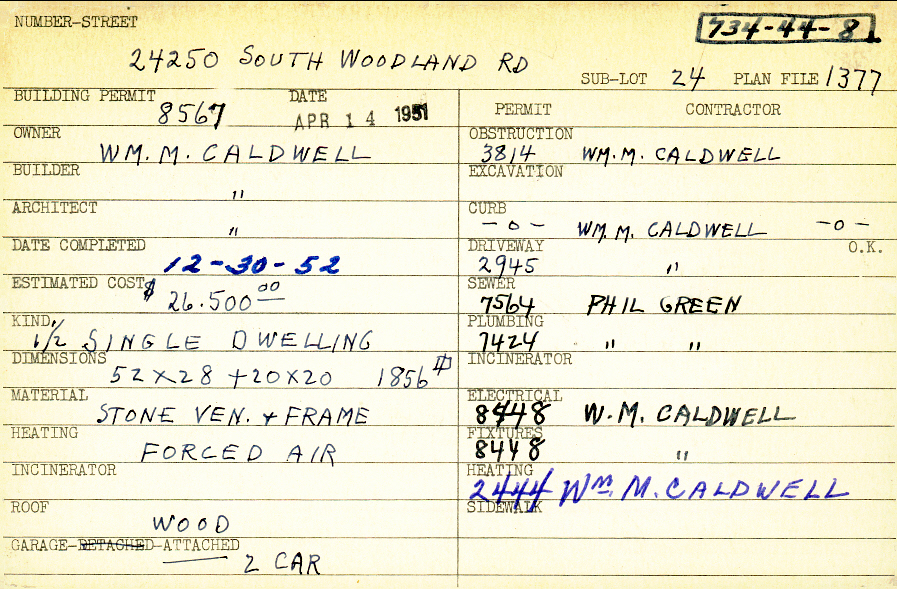 NUMBER-STREET
734-44-8
24250 SOUTH WOODLAND RD
SUB-LOT 24 PLAN FILE 1377
BUILDING PERMIT DATE
8567 APR 14 1951
PERMIT CONTRACTOR
OWNER
WM. M. CALDWELL
OBSTRUCTION
3814 WM. M. CALDWELL
BUILDER
"
EXCAVATION
ARCHITECT
"
CURB
-0- WM. M. CALDWELL -0-
DATE COMPLETED
12-30-52
DRIVEWAY O.K.
2945 "
ESTIMATED COST $ 26.500 00
SEWER
7564 PHIL GREEN
KIND
1 1/2 SINGLE DWELLING
PLUMBING
7424 " "
DIMENSIONS
52 X 28 + 20 X 20 1856
INCINERATOR
MATERIAL
STONE VEN. + FRAME
ELECTRICAL
8448 W. M. CALDWELL
HEATING
FORCED AIR
FIXTURES
8448 "
INCINERATOR
HEATING
2444 WM. M. CALDWELL
ROOF
WOOD
SIDEWALK
GARAGE-DETACHED-ATTACHED
2 CAR